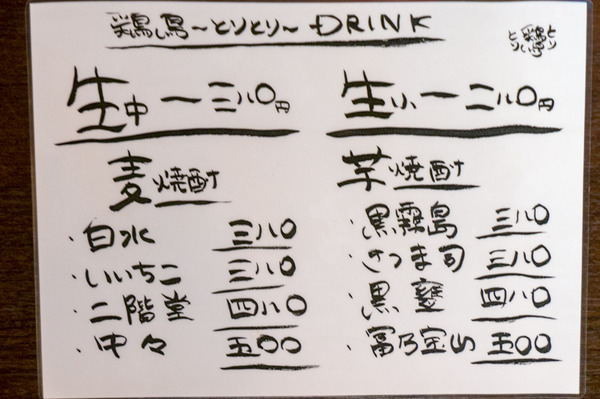 鶏鳥〜とりとり〜DRINK
生中ー三八〇円
生小ー二八〇円
麦焼酎
・白水 三八〇
・いいちこ 三八〇
・二階堂 四八〇
・中々 五〇〇
芋焼酎
・黒霧島 三八〇
・さつま司 三八〇
・黒寶 四八〇
・冨乃宝山 五〇〇